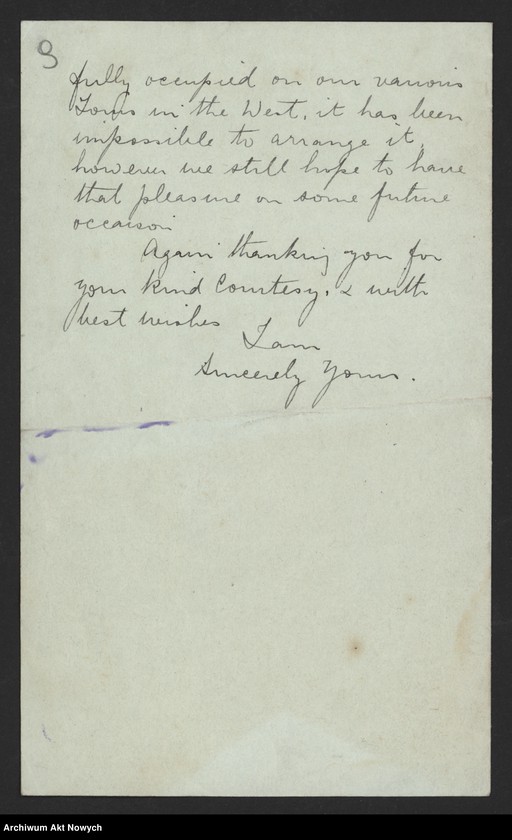 3
fully occupied on our various
Tours in the West, it has been
impossible to arrange it,
however we still hope to have
that pleasure on some future
occaison
Again thanking you for
your kind Courtesy, & with
best wishes
I am
Sincerely Yours.
Archiwum Akt Nowych